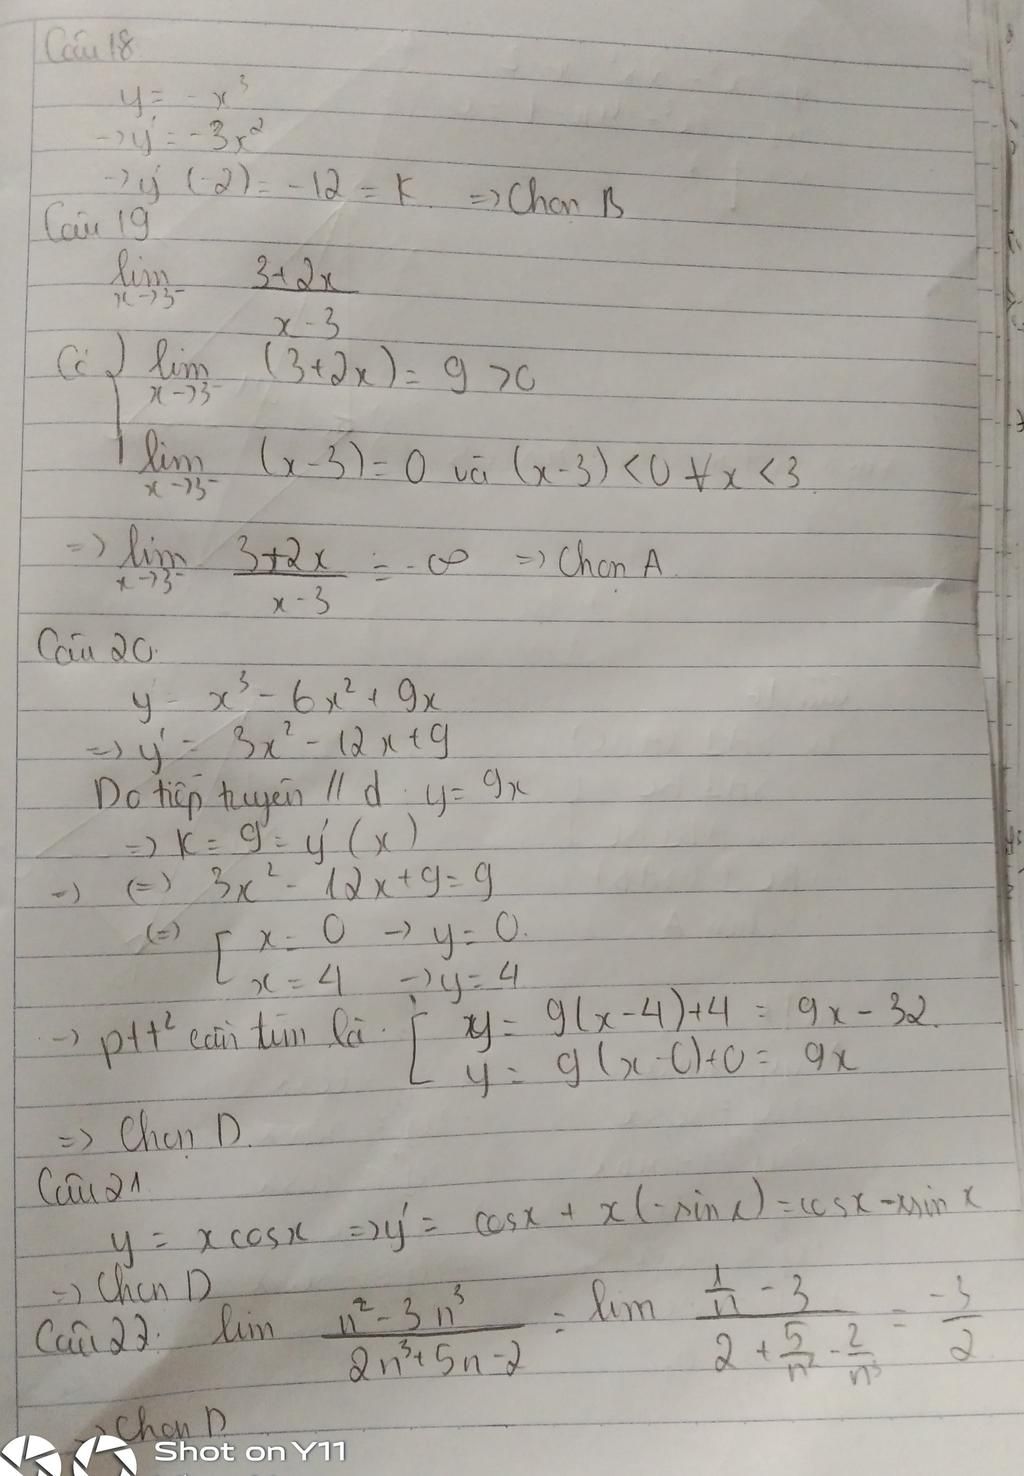 Câu 18.
y = -x³
→ y' = -3x²
→ y'(-2) = -12 = k. ⇒ Chọn B
Câu 19
lim x→3⁻ (3+2x)/(x-3)
Có { lim x→3⁻ (3+2x) = 9 > 0
lim x→3⁻ (x-3) = 0 và (x-3) < 0 ∀x < 3.
⇒ lim x→3⁻ (3+2x)/(x-3) = -∞ ⇒ Chọn A.
Câu 20.
y = x³ - 6x² + 9x
⇒ y' = 3x² - 12x + 9
Do tiếp tuyến // d: y = 9x
⇒ k = 9 = y'(x)
→ (=) 3x² - 12x + 9 = 9
(=) [ x = 0 → y = 0.
x = 4 → y = 4
→ ptt² cần tìm là: [ y = 9(x-4)+4 = 9x - 32.
y = 9(x-0)+0 = 9x
⇒ Chọn D.
Câu 21.
y = x cosx ⇒ y' = cosx + x(-sinx) = cosx - xsinx
⇒ Chọn D
Câu 22. lim (n² - 3n³)/(2n³ + 5n - 2) = lim (1/n - 3)/(2 + 5/n² - 2/n³) = -3/2
→ Chọn D.
Shot on Y11